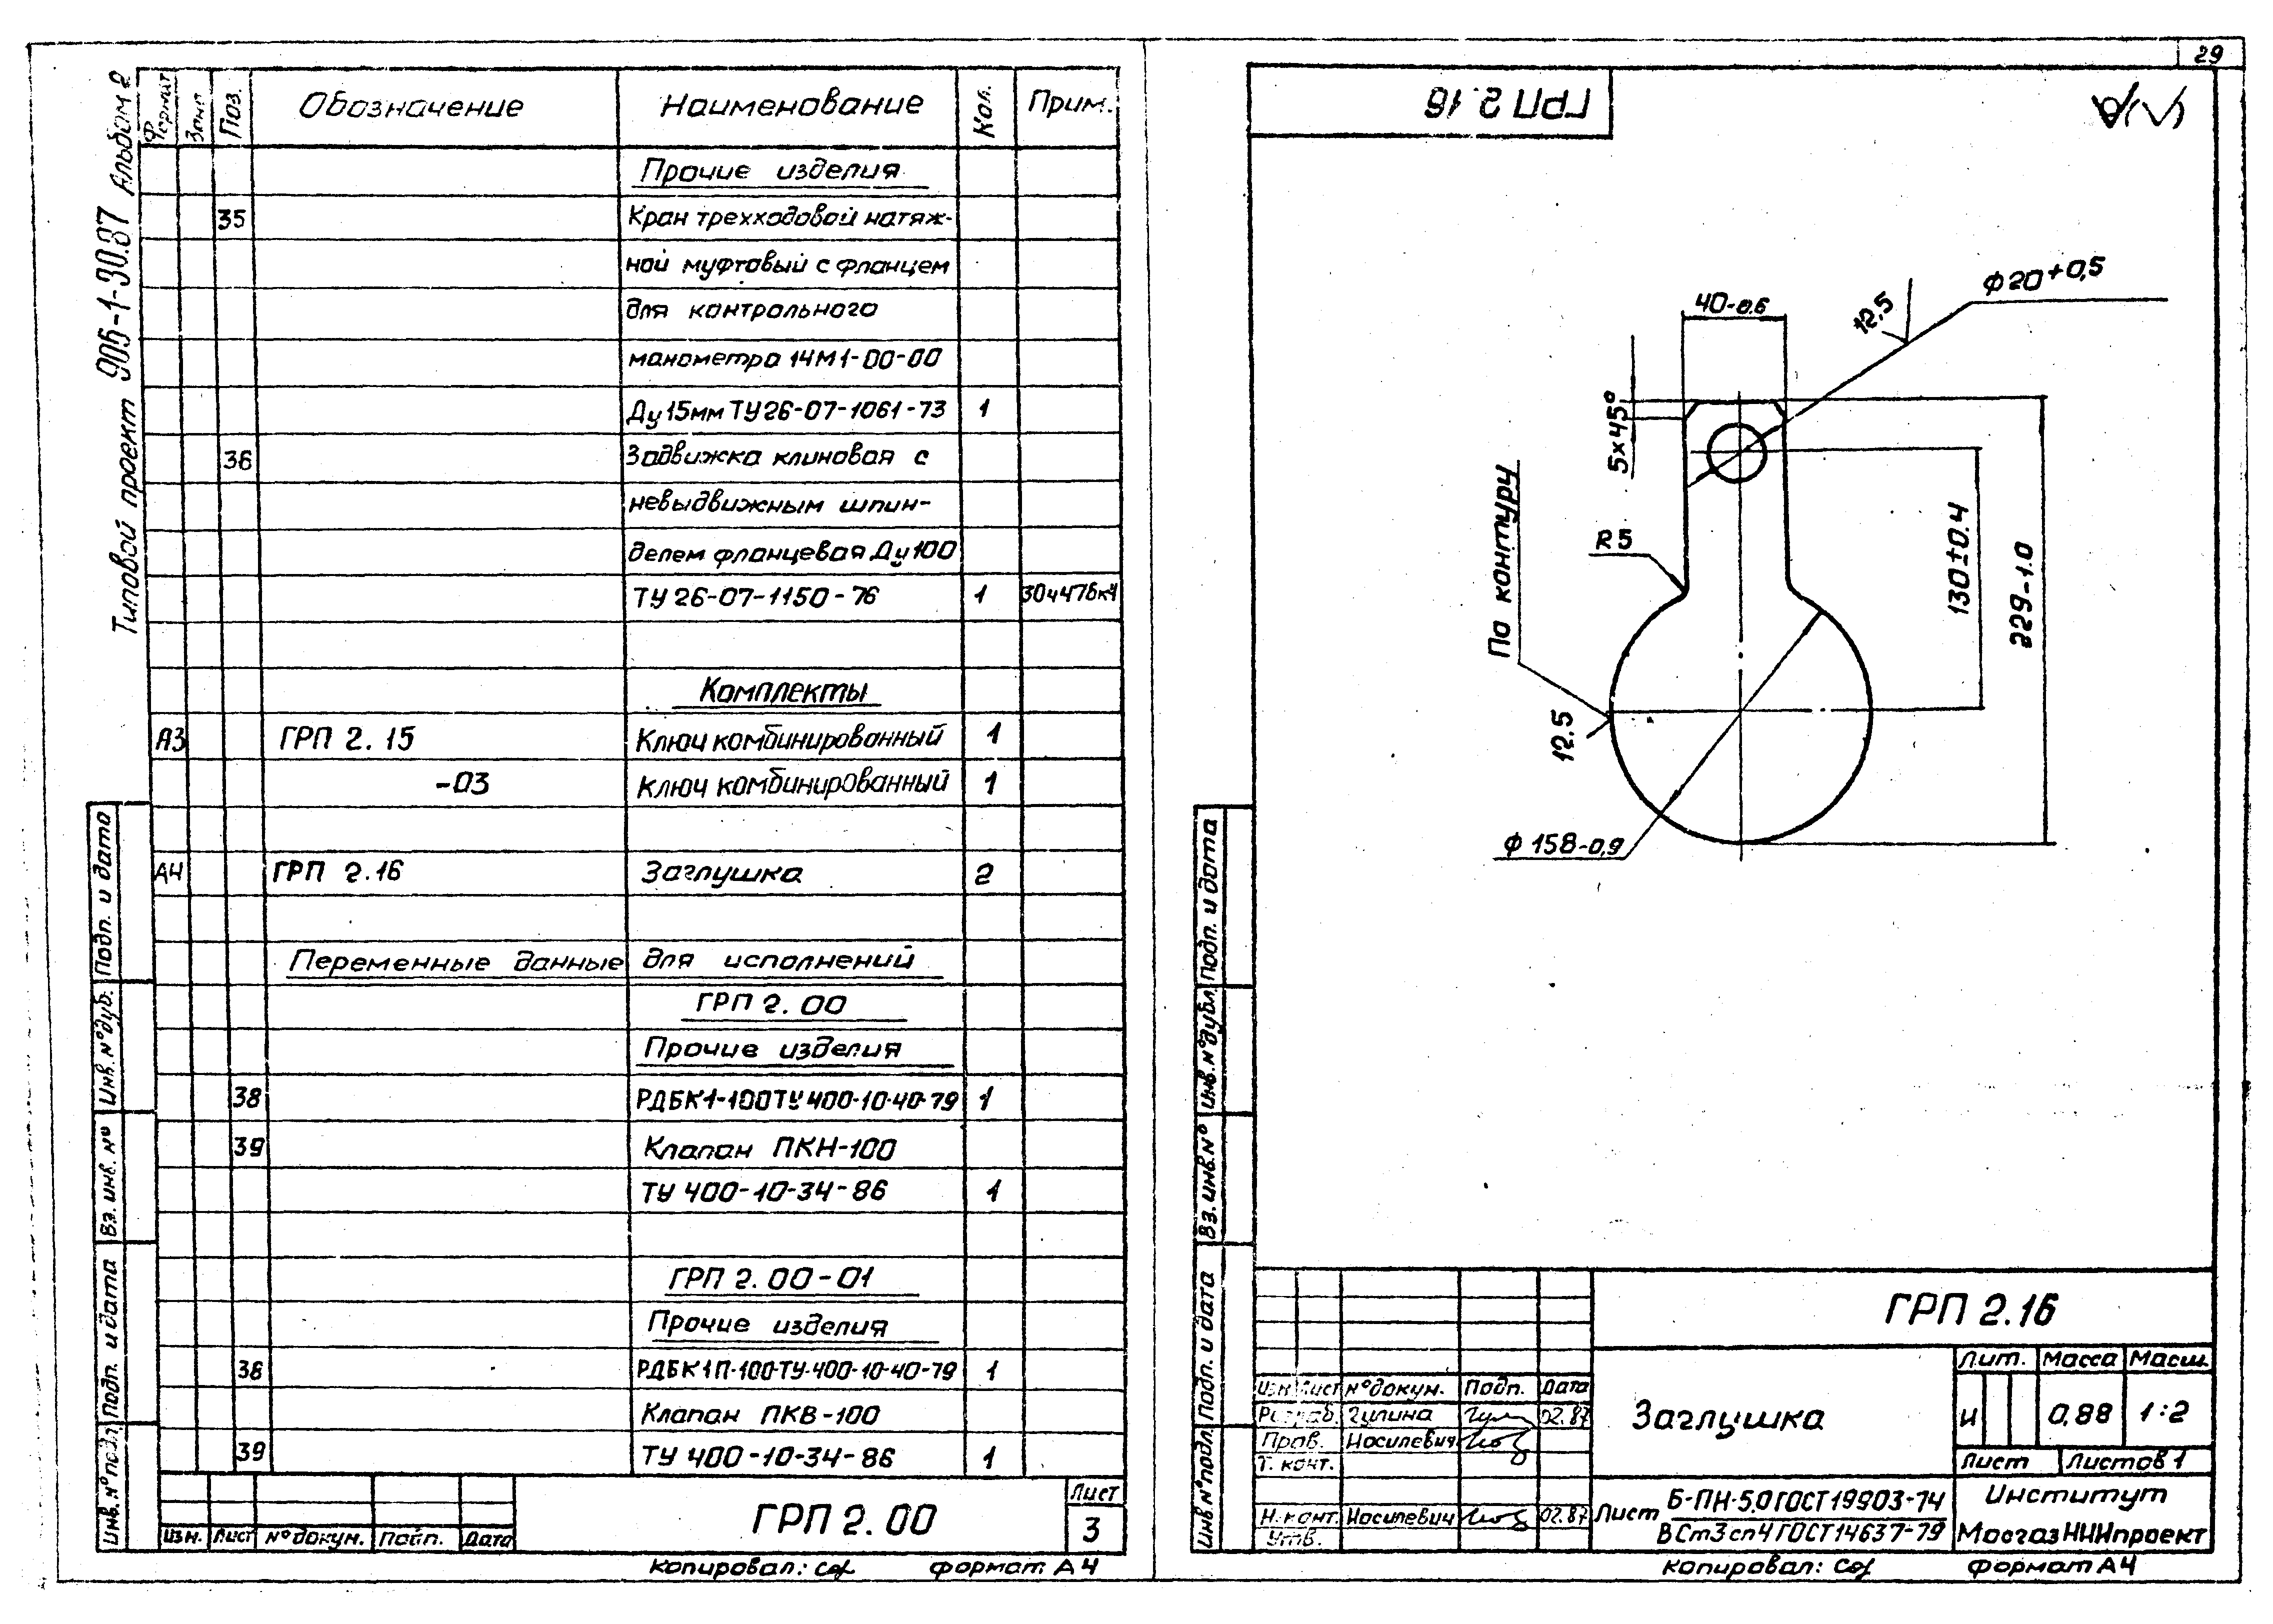 29
Типовой проект 905-1-30.87 Альбом 2
Формат Зона Поз. Обозначение Наименование Кол. Прим.
Прочие изделия
35 Кран трехходовой натяж-
ной муфтовый с фланцем
для контрольного
манометра 14М1-00-00
Ду15мм ТУ26-07-1061-73 1
36 Задвижка клиновая с
невыдвижным шпин-
делем фланцевая Ду100
ТУ 26-07-1150-76 1 30ч47бк4
Комплекты
А3 ГРП 2.15 Ключ комбинированный 1
-03 Ключ комбинированный 1
А4 ГРП 2.16 Заглушка 2
Переменные данные для исполнений
ГРП 2.00
Прочие изделия
38 РДБК1-100ТУ400-10-40-79 1
39 Клапан ПКН-100
ТУ 400-10-34-86 1
ГРП 2.00-01
Прочие изделия
38 РДБК1П-100-ТУ-400-10-40-79 1
Клапан ПКВ-100
39 ТУ 400-10-34-86 1
Подп. и дата
Инв. №дуб.
Вз. инв. №
Подп. и дата
Инв. №подл.
Изм. Лист №докум. Подп. Дата
ГРП 2.00
Лист
3
Копировал: формат А4
ГРП 2.16
ф20+0,5
12,5
40-0.6
5x45°
R5
По контуру
12.5
130±0.4
229-1.0
ф 158-0,9
Подп. и дата
Инв. №дубл.
Вз. инв. №
Подп. и дата
Инв №подл.
ГРП 2.16
Лит. Масса Масш.
Изм Лист №докум. Подп. Дата
Разраб. Гулина 02.87
Заглушка
И 0,88 1:2
Пров. Носилевич
Т. конт.
Лист Листов 1
Н.конт. Носилевич 02.87
Утв.
Лист Б-ПН-5,0 ГОСТ 19903-74
ВСт3сп4 ГОСТ 14637-79
Институт
МосгазНИИпроект
Копировал: формат А4